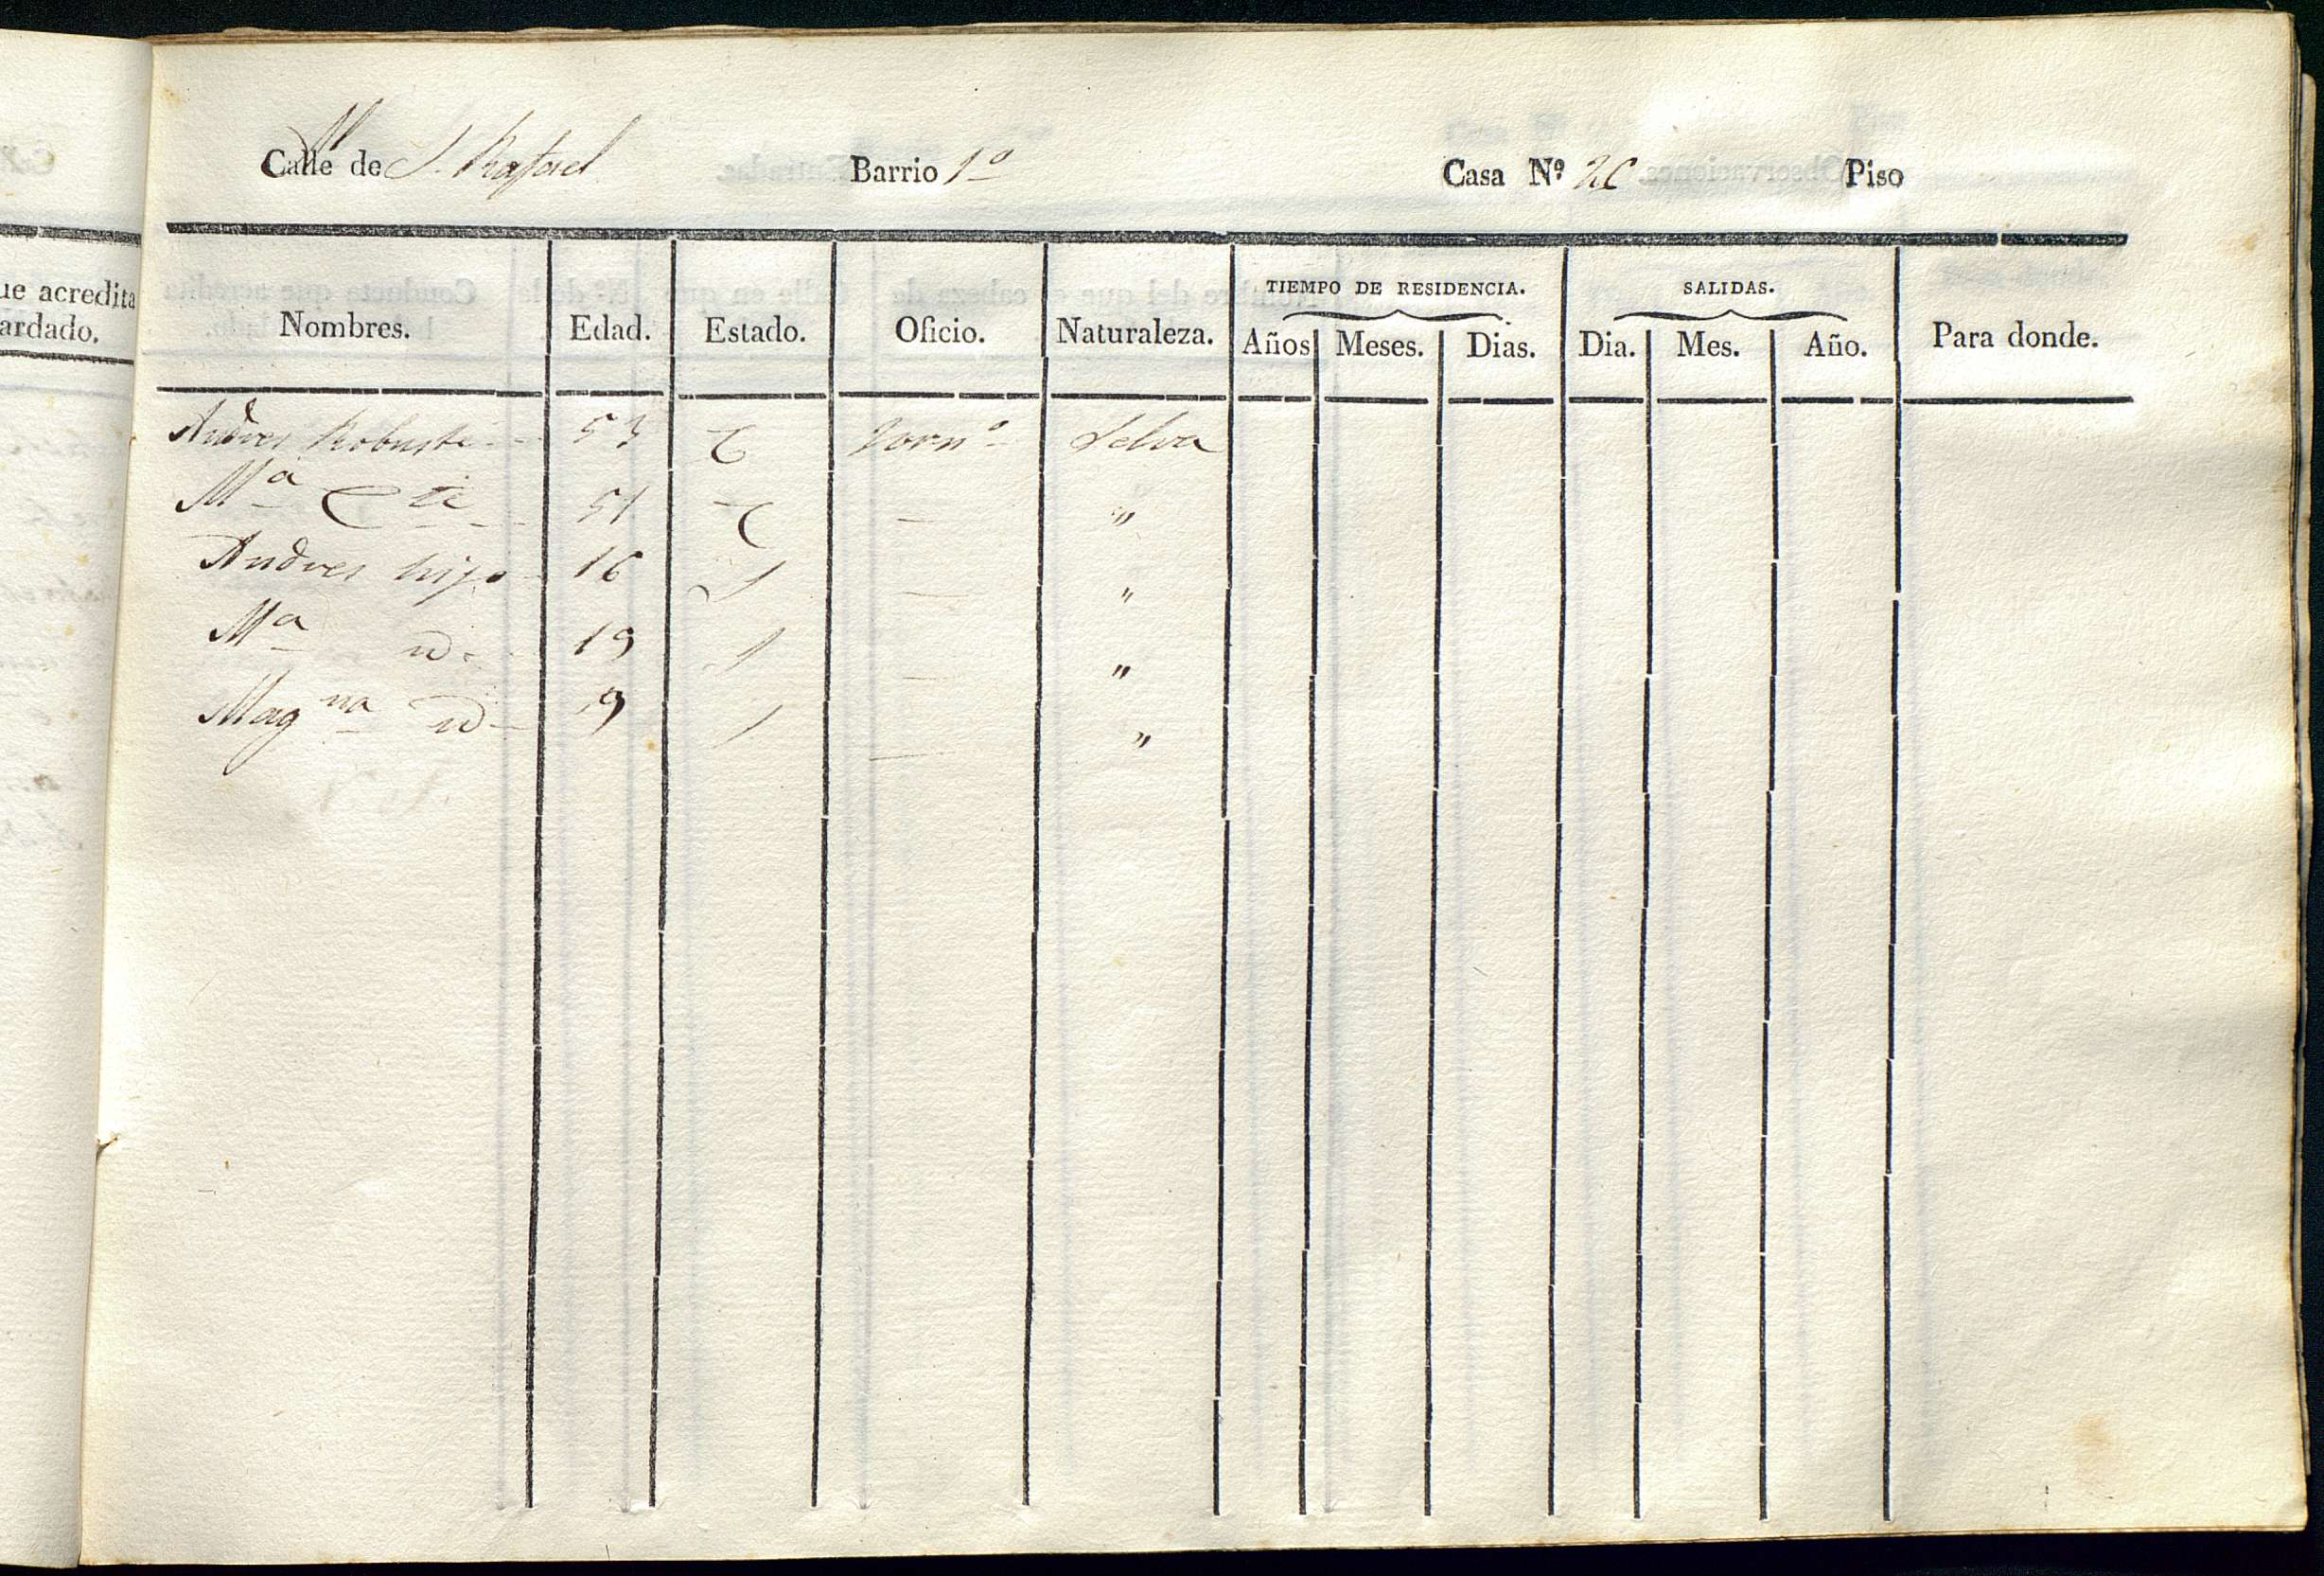 ue acredita
ardado.
Calle de S. Rafael Barrio 1º Casa Nº Piso
Nombres. Edad. Estado. Oficio. Naturaleza. TIEMPO DE RESIDENCIA. Años Meses. Dias. SALIDAS. Dia. Mes. Año. Para donde.
Andres Robuste 53 C Jornº Selva
Mª C 51 C — "
Andres hijo 16 S — "
Mª id. 19 S — "
Magna id 9 S — "